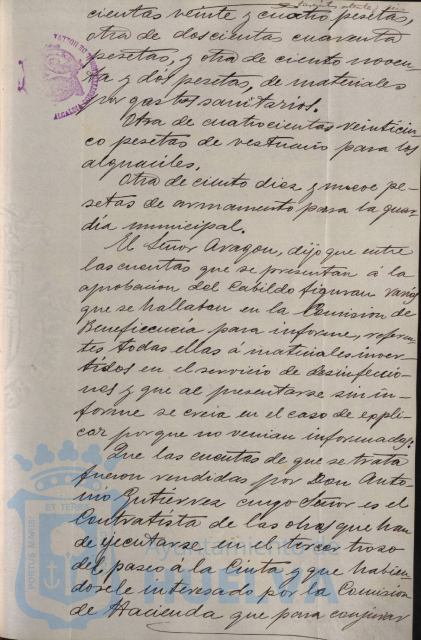 cientas veinte y cuatro pesetas,
otra de doscientas cuarenta
pesetas, y otra de ciento noven-
ta y dos pesetas, de materiales
por gastos sanitarios.
Otra de cuatrocientas veinticin-
co pesetas de vestuario para los
alguaciles.
Otra de ciento diez y nueve pe-
setas de armamento para la guar-
dia municipal.
El Señor Aragon, dijo que entre
las cuentas que se presentan á la
aprobacion del Cabildo figuran varias
que se hallaban en la Comision de
Beneficencia para informe, referen-
tes todas ellas á materiales inver-
tidos en el servicio de desinfeccio-
nes y que al presentarse sin in-
forme se creia en el caso de expli-
car porque no venian informadas.
Que las cuentas de que se trata
fueron rendidas por Don Anto-
nio Gutierrez cuyo Señor es el
Contratista de las obras que han
de ejecutarse en el tercer trozo
del paseo á la Cinta y que habien-
dosele interesado por la Comision
de Hacienda que para conjurar
Ayuntamiento de
HUELVA
PORTUS MARIS
ET TERRAE